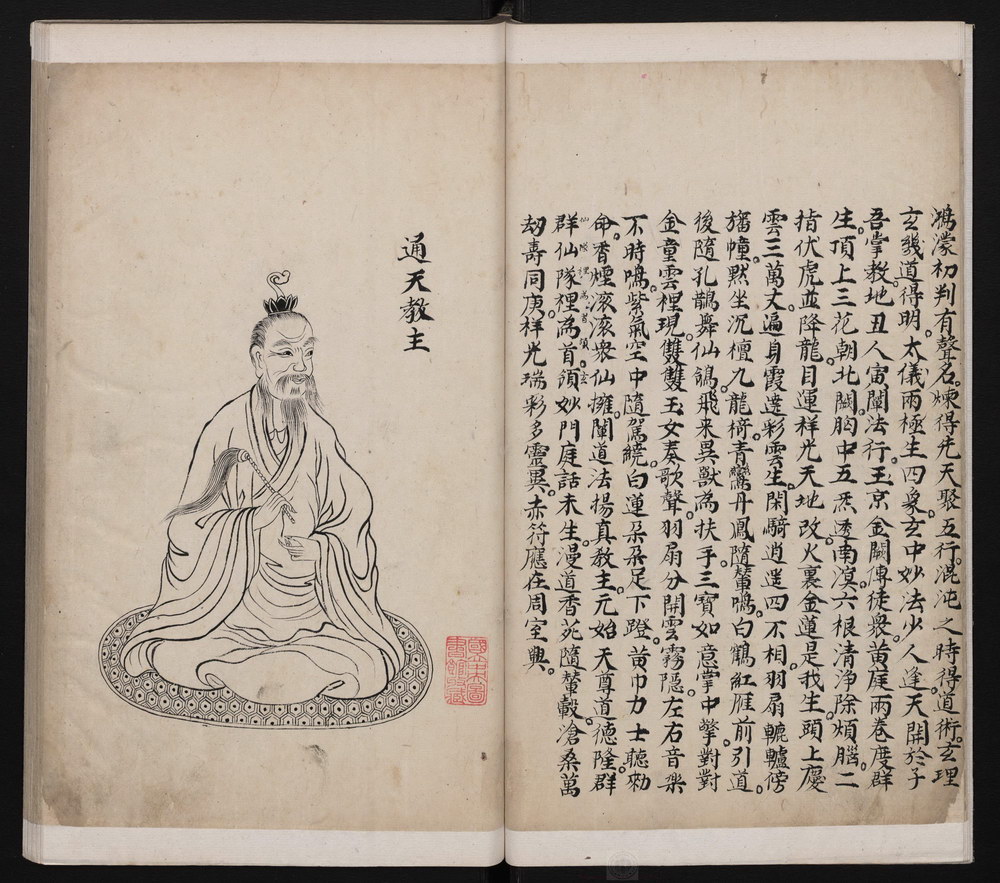 鴻濛初判有聲名。煉得先天聚五行。混沌之時得道術。玄理
玄幾道得明。太儀兩極生四象。玄中妙法少人逢天開於子
吾掌教。地丑人寅闡法行。玉京金闕傳徒衆。黃庭兩卷度群
生。頂上三花朝北闕。胸中五炁透南溟。六根清淨除煩腦。二
指伏虎並降龍。目運祥光天地改。火裏金蓮是我生。頭上慶
雲三萬丈。遍身霞遶彩雲生。閑騎逍遥四不相。羽扇轆轤傍
旛幢。默坐沉檀九龍椅。青鸞丹鳳隨輦鳴。白鶴紅雁前引道。
後隨孔鵲舞仙鴿。飛来異獸為扶手。三寶如意掌中擎。對對
金童雲裡現。雙雙玉女奏歌聲。羽扇分開雲霧隱。左右音樂
不時鳴。紫氣空中隨駕繞。白蓮朶朶足下蹬。黃巾力士聽勑
命。香煙滾滾衆仙擁。闡道法揚真教主。元始天尊道德隆。群
群仙隊裡為首領。妙門庭話未生。漫道香菀隨輦轂。滄桑萬
劫壽同庚。祥光瑞彩多靈異。赤符應在周室興。
通天教主